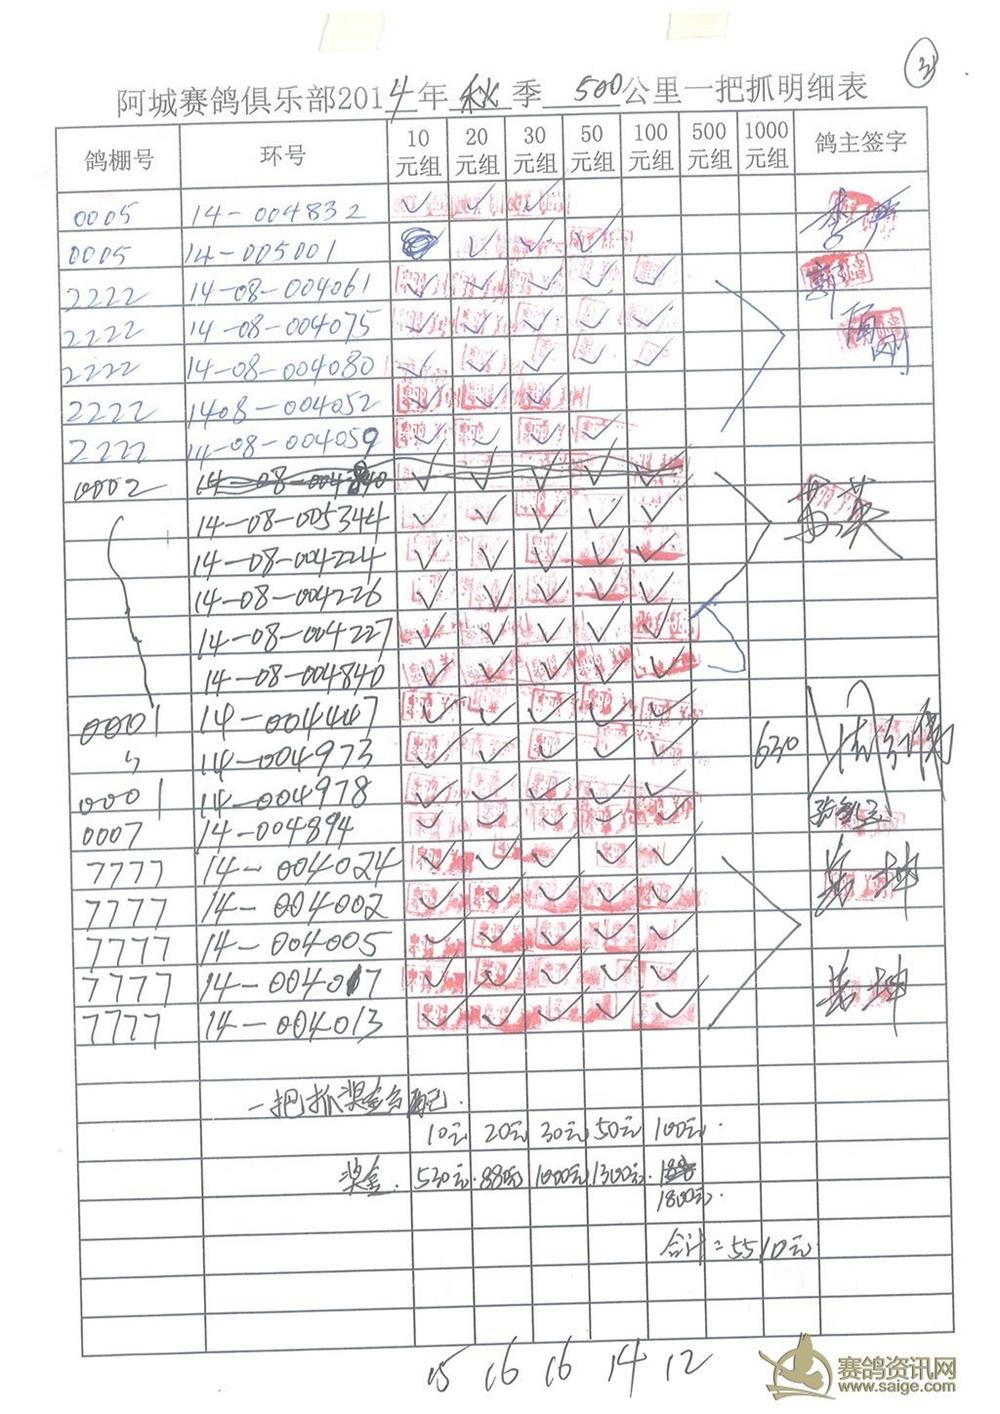 3
阿城赛鸽俱乐部2014年秋季500公里一把抓明细表
鸽棚号 环号 10元组 20元组 30元组 50元组 100元组 500元组 1000元组 鸽主签字
0005 14-004832 ✓ ✓ ✓
0005 14-005001 ✓ ✓ ✓
2222 14-08-004061 ✓ ✓ ✓ ✓ ✓
2222 14-08-004075 ✓ ✓ ✓ ✓ ✓
2222 14-08-004080 ✓ ✓ ✓ ✓ ✓
2222 1408-004052 ✓ ✓ ✓
2222 14-08-004059 ✓ ✓ ✓ ✓
0002 14-08-004840 ✓ ✓ ✓ ✓ ✓
14-08-005344 ✓ ✓ ✓ ✓ ✓
14-08-004224 ✓ ✓ ✓ ✓ ✓
14-08-004226 ✓ ✓ ✓ ✓ ✓
14-08-004227 ✓ ✓ ✓ ✓ ✓
14-08-004840 ✓ ✓ ✓ ✓ ✓
0001 14-004447 ✓ ✓ ✓ ✓ ✓
〃 14-004973 ✓ ✓ ✓ ✓ ✓ 630
0001 14-004978 ✓ ✓ ✓ ✓ ✓
0007 14-004894 ✓ ✓ ✓ ✓ ✓
7777 14-004024 ✓ ✓ ✓ ✓ ✓
7777 14-004002 ✓ ✓ ✓ ✓ ✓
7777 14-004005 ✓ ✓ ✓ ✓ ✓
7777 14-004017 ✓ ✓ ✓ ✓ ✓
7777 14-004013 ✓ ✓ ✓ ✓ ✓
一把抓奖金
10元 20元 30元 50元 100元.
奖金. 530元. 880元 1000元 1300元.
1800元.
合计=5510元
15 16 16 14 12
赛鸽资讯网
www.saige.com